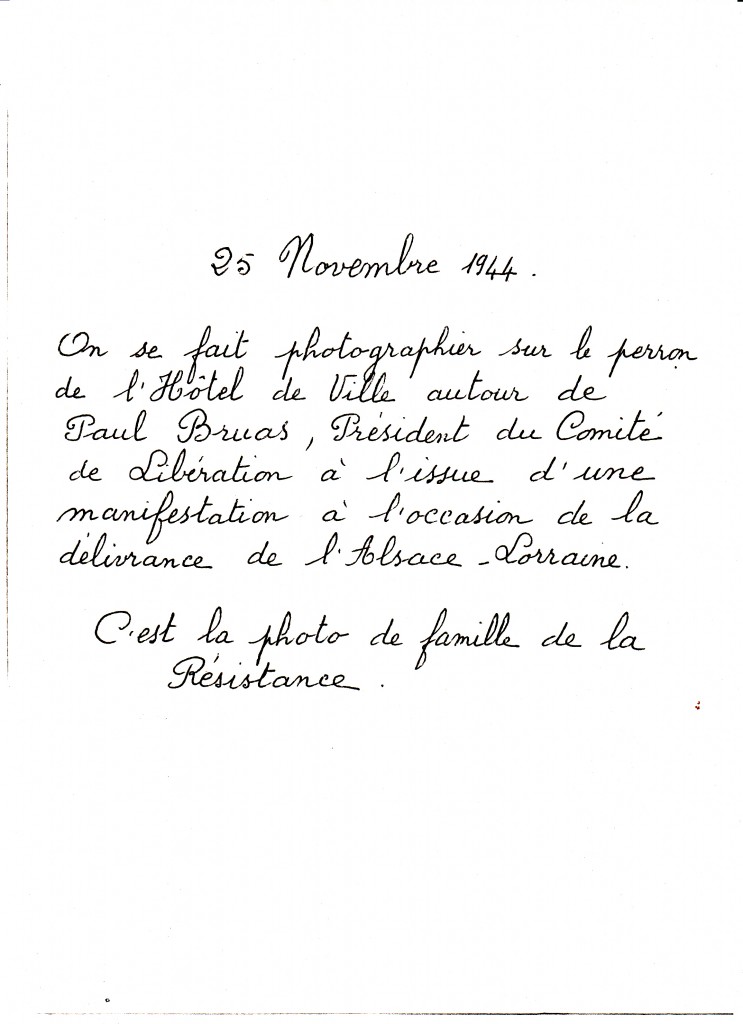 25 Novembre 1944.
On se fait photographier sur le perron
de l'Hôtel de Ville autour de
Paul Bruas, Président du Comité
de Libération à l'issue d'une
manifestation à l'occasion de la
délivrance de l'Alsace-Lorraine.
C'est la photo de famille de la
Résistance.